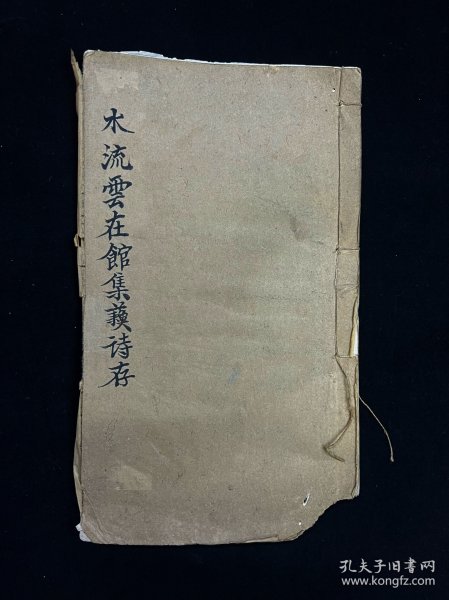 水流雲在館集蘇诗存
孔夫子旧书网
www.kongfz.com